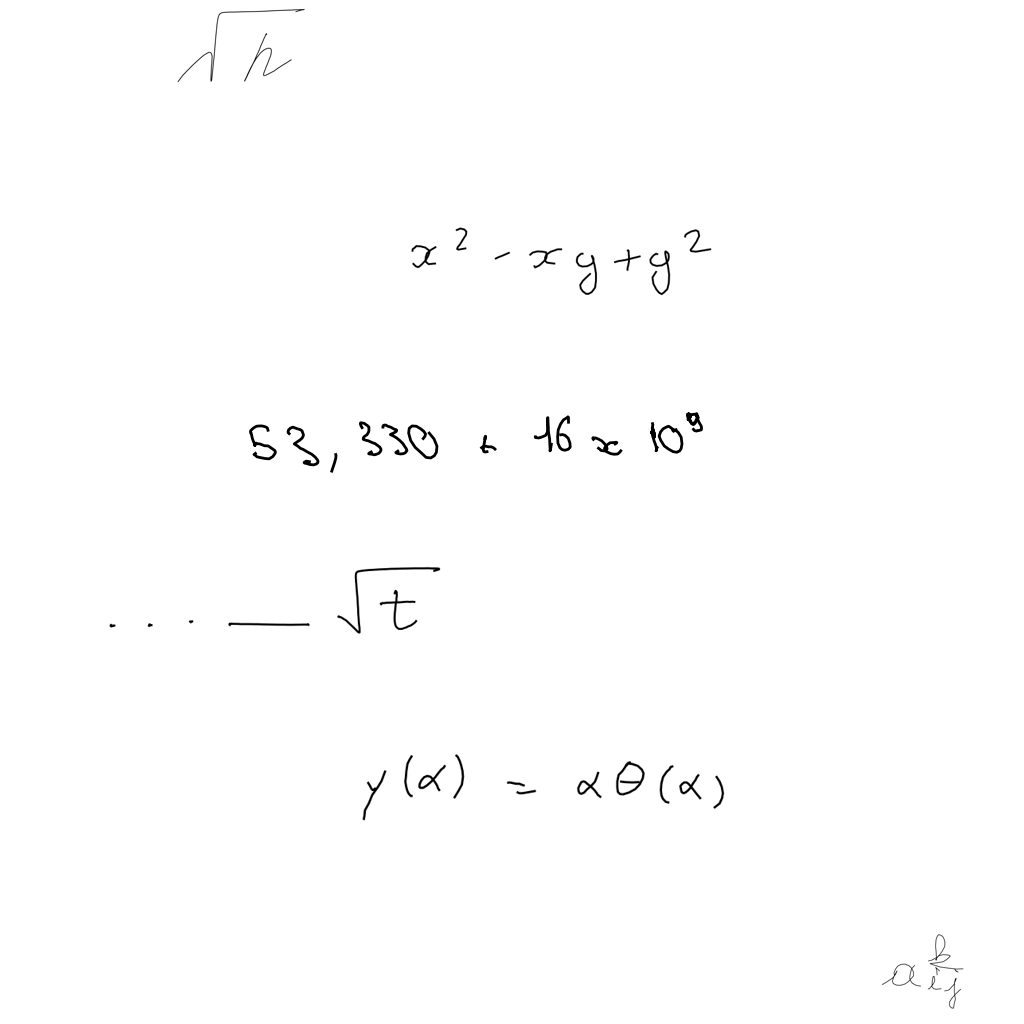 √h
x² - xy + y²
53,330 + 16 x 10⁹
... — √t
y(α) = αθ(α)
a^{k}_{ij}